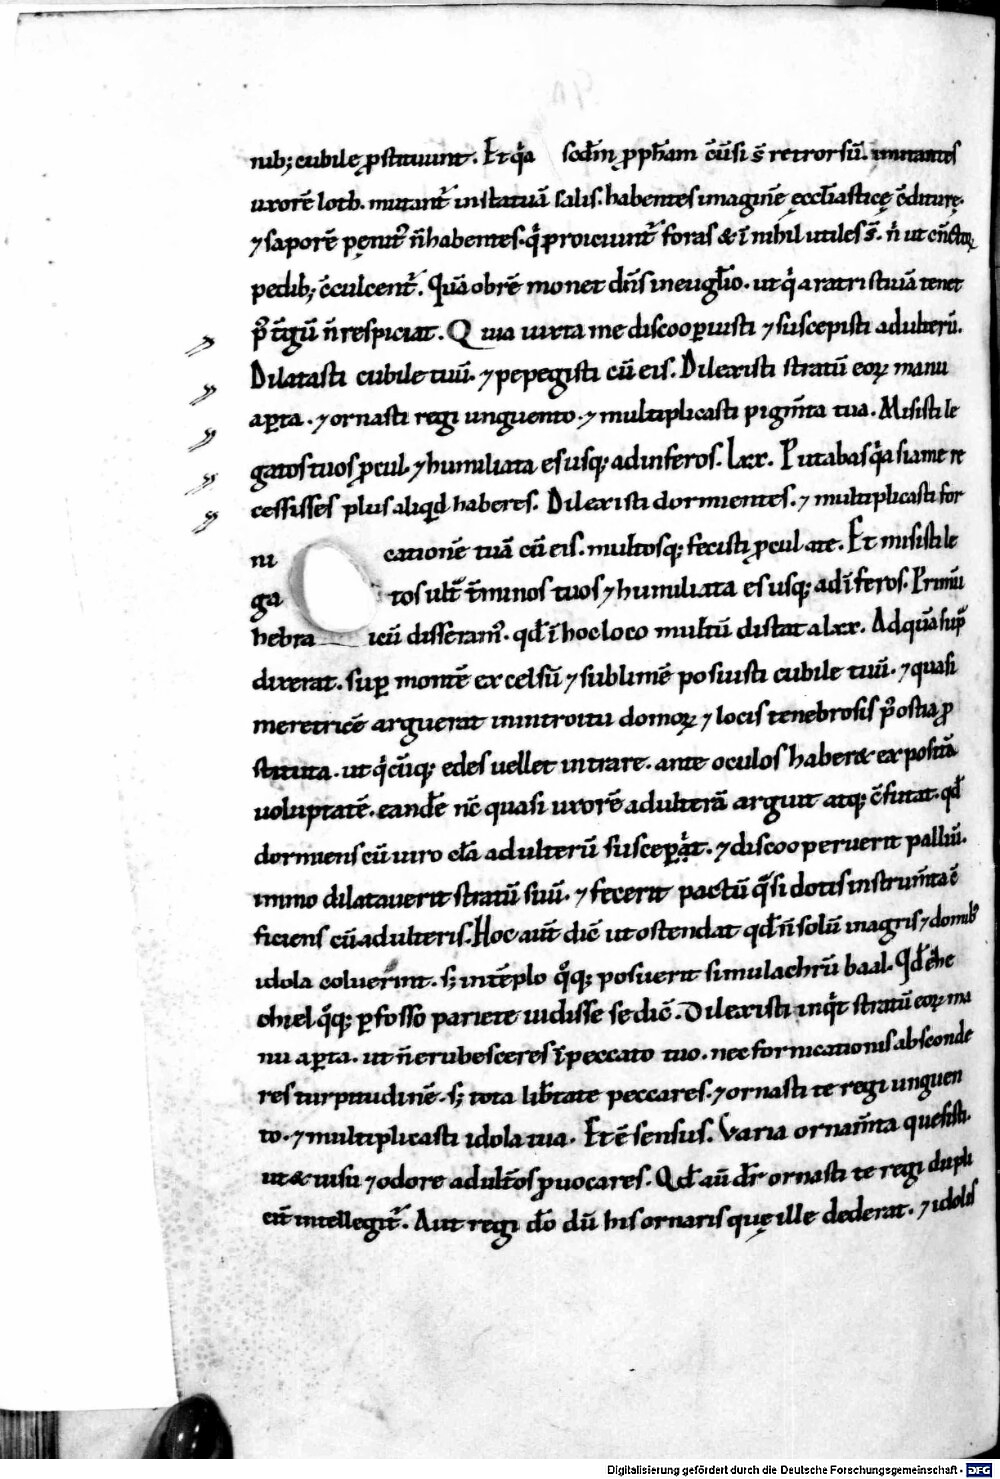 nib; cubile ꝓstituunt. Et qͥa scd̄m ꝓph̄am c̄uersi s̄ retrorsū. imitantes
uxorē loth. mutant᷑ in statuā salis. habentes imaginē ęccl̄iasticę c̄diturę.
⁊ saporē pęnit᷑ n̄ habentes. qͥ proiciunt᷑ foras & ī nihil utiles s̄. n̄ ut cūctoꝝ
pedib; c̄culcent᷑. Quā obrē monet dn̄s in eugl̄io. ut qͥ aratri stiuā tenet
p᷒ t̄gū n̄ respiciat. Quia iuxta me discooꝑuisti ⁊ suscepisti adulterū.
Dilatasti cubile tuū. ⁊ pepegisti cū eis. Dilexisti stratū eoꝝ manu
aꝑta. ⁊ ornasti regi unguento. ⁊ multiplicasti pigm̄ta tua. Misisti le
gatos tuos ꝓcul. ⁊ humiliata es usq; ad inferos. lxx. Putabas qͥa si a me re
cessisses plus aliqͥd haberes. Dilexisti dormientes. ⁊ multiplicasti for
ni cationē tuā cū eis. multosq; fecisti ꝓcul a te. Et misisti le
ga tos ult᷑ t̄minos tuos ⁊ humiliata es usq; ad īferos. Primū
hebra icū disseram᷒. qd̄ ī hoc loco multū distat a lxx. Ad quā sup᷑
dixerat. suꝑ montē excelsū ⁊ sublimē posuisti cubile tuū. ⁊ quasi
meretricē arguerat in introitu domoꝝ ⁊ locis tenebrosis p᷒ ostia ꝓ
stituta. ut qͥcūq; edes uellet intrare. ante oculos haber& expositā
uoluptatē. eandē nc̄ quasi uxorē adulterā arguit atq; c̄futat. qd̄
dormiens cū uiro cl̄a adulterū susceꝑit. ⁊ discooperuerit palliū.
immo dilatauerit stratū suū. ⁊ fecerit pactū qͣsi dotis instrum̄ta c̄
ficiens cū adulteris. Hoc aut̄ dic̄ ut ostendat qd̄ n̄ solū in agris ⁊ domib᷒
idola coluerint. s; in tēplo qͦq; posuerit simulachrū baal. Qd̄ & he
chiel qͦq; ꝑfosso pariete uidisse se dic̄. Dilexisti inqͥt stratū eoꝝ ma
nu aꝑta. ut n̄ erubesceres ī peccato tuo. nec fornicationis absconde
res turpitudinē. s; tota lib̄tate peccares. ⁊ ornasti te regi unguen
to. ⁊ multiplicasti idola tua. Et ē sensus. Varia ornam̄ta quesisti.
ut & uisu ⁊ odore adult̄os ꝓuocares. Qd̄ aū dr̄ ornasti te regi dupli
cit̄ intellegit᷑. Aut regi do̅ dū his ornaris quę ille dederat. ⁊ idolis
Digitalisierung gefördert durch die Deutsche Forschungsgemeinschaft - DFG